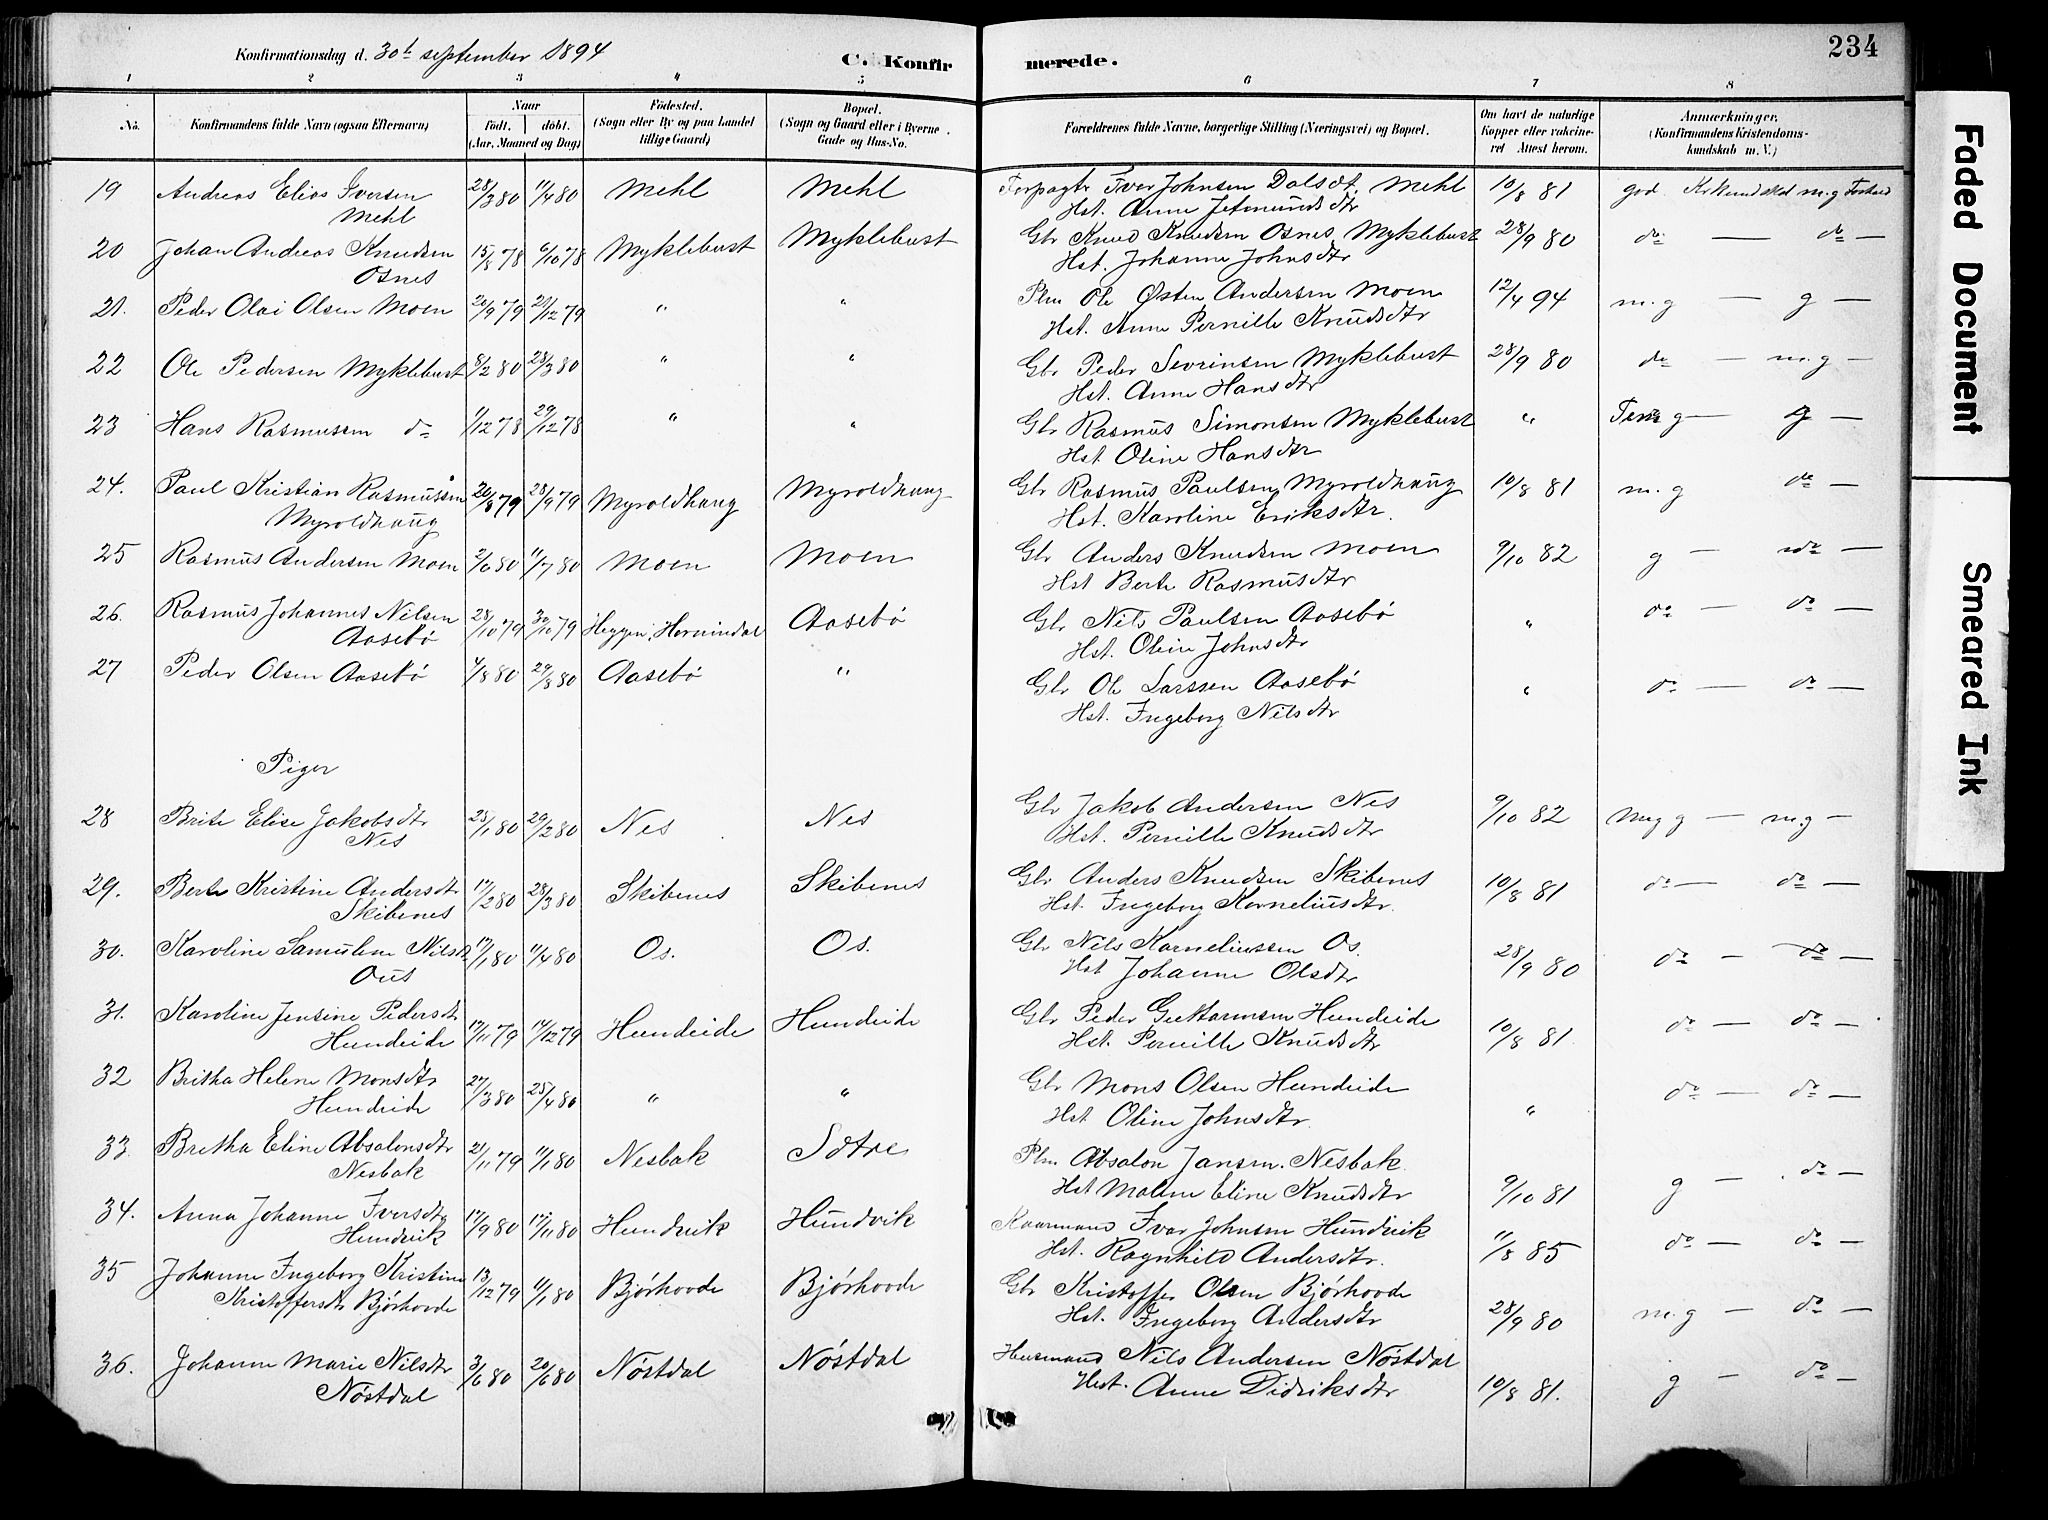 Konfirmationsdag d. 30t september 1894
C. Konfirmerede.
234
1 2 3 4 5 6 7 8
No. Konfirmandens fulde Navn (ogsaa Efternavn) Naar født. døbt. (Aar, Maaned og Dag) Fødested. (Sogn eller By og paa Landet tillige Gaard) Bopæl. (Sogn og Gaard eller i Byerne Gade og Hus-No. Forældrenes fulde Navne, borgerlige Stilling (Næringsvei) og Bopæl. Om havt de naturlige Kopper eller vakcineret Attest herom. Anmærkninger. (Konfirmandens Kristendomskundskab m. V.)
19 Andreas Elias Iversen 28/3 80 11/4 80 Mehl Mehl Forpagtr Ivar Johnsen Dalsdt. Mehl 10/8 81 god Kr kundskab m.g Forhold
Mehl Hst. Anne Jetmundsdtr
20 Johan Andreas Knudsen 15/8 78 6/10 78 Myklebust Myklebust Gbr Knud Knudsen Osnes Myklebust 28/9 80 do — do —
Osnes Hst. Johanne Johnsdtr
21. Peder Olai Olsen Moen 20/9 79 21/12 79 " " Plm Ole Østen Andersen Moen 12/4 94 m.g — g —
Hst. Anne Pernille Knudsdtr
22 Ole Pedersen Myklebust 8/2 80 28/3 80 " " Gbr Peder Sevrinsen Myklebust 28/9 80 do — m.g —
Hst. Anne Hansdtr
23 Hans Rasmussen do 1/12 78 29/12 78 " " Gbr Rasmus Simonsen Myklebust " g — g —
Hst. Oline Hansdtr
24. Paul Kristian Rasmussen 20/8 79 28/9 79 Myroldhaug Myroldhaug Gbr Rasmus Paulsen Myroldhaug 10/8 81 m.g do —
Myroldhaug Hst. Karoline Eriksdtr.
25 Rasmus Andersen Moen 2/6 80 11/7 80 Moen Moen Gbr Anders Knudsen Moen 9/10 82 g — do —
Hst Berte Rasmusdtr
26. Rasmus Johannes Nilsen 28/10 79 30/10 79 Heggen, Hornindal Aasebø Gbr Nils Paulsen Aasebø " do — do —
Aasebø Hst. Oline Johnsdtr
27 Peder Olsen Aasebø 4/8 80 29/8 80 Aasebø " Gbr Ole Larssen Aasebø " do — do —
Hst. Ingeborg Nilsdtr
Piger
28 Brite Elise Jakobsdtr 25/1 80 29/2 80 Nes Nes Gbr Jakob Andersen Nes 9/10 82 meg g — m.g —
Nes Hst. Pernille Knudsdtr
29. Berte Kristine Andersdtr 17/2 80 28/3 80 Skibenes Skibenes Gbr Anders Knudsen Skibenes 10/8 81 do — do —
Skibenes Hst. Ingeborg Korneliusdtr.
30. Karoline Samuline Nilsdtr 17/1 80 11/4 80 Os. Os. Gbr Nils Korneliussen Os. 28/9 80 do — do —
Ous Hst Johanne Olsdtr
31. Karoline Jensine Pedersdtr 17/11 79 14/12 79 Hundeide Hundeide Gbr Peder Guttormsen Hundeide 10/8 81. do — do —
Hundeide Hst. Pernille Knudsdtr
32 Britha Helene Monsdtr 27/3 80 25/4 80 " " Gbr Mons Olsen Hundeide " do — do —
Hundeide Hst Oline Johnsdtr.
33 Bretha Eline Absalonsdtr 21/11 79 11/1 80 Nesbak Sætre Plm Absalon Jansen Nesbak. 9/10 81 g — do —
Nesbak Hst Malene Eline Knudsdtr
34. Anna Johanne Iversdtr 17/9 80 17/11 80 Hundvik Hundvik Kaarmand Ivar Johnsen Hundvik 11/8 85 do — do —
Hundvik Hst. Ragnhild Andersdtr.
35 Johanne Ingeborg Kristine 13/12 79 11/1 80 Bjørhovde Bjørhovde Gbr Kristoffer Olsen Bjørhovde 28/9 80 m.g — do —
Kristoffersdtr Bjørhovde Hst. Ingeborg Andersdtr
36. Johanne Marie Nilsdtr 3/6 80 20/6 80 Nøstdal Nøstdal Husmand Nils Andersen Nøstdal 10/8 81. g — do —
Nøstdal Hst. Anne Didriksdtr
Faded Document
Smeared Ink